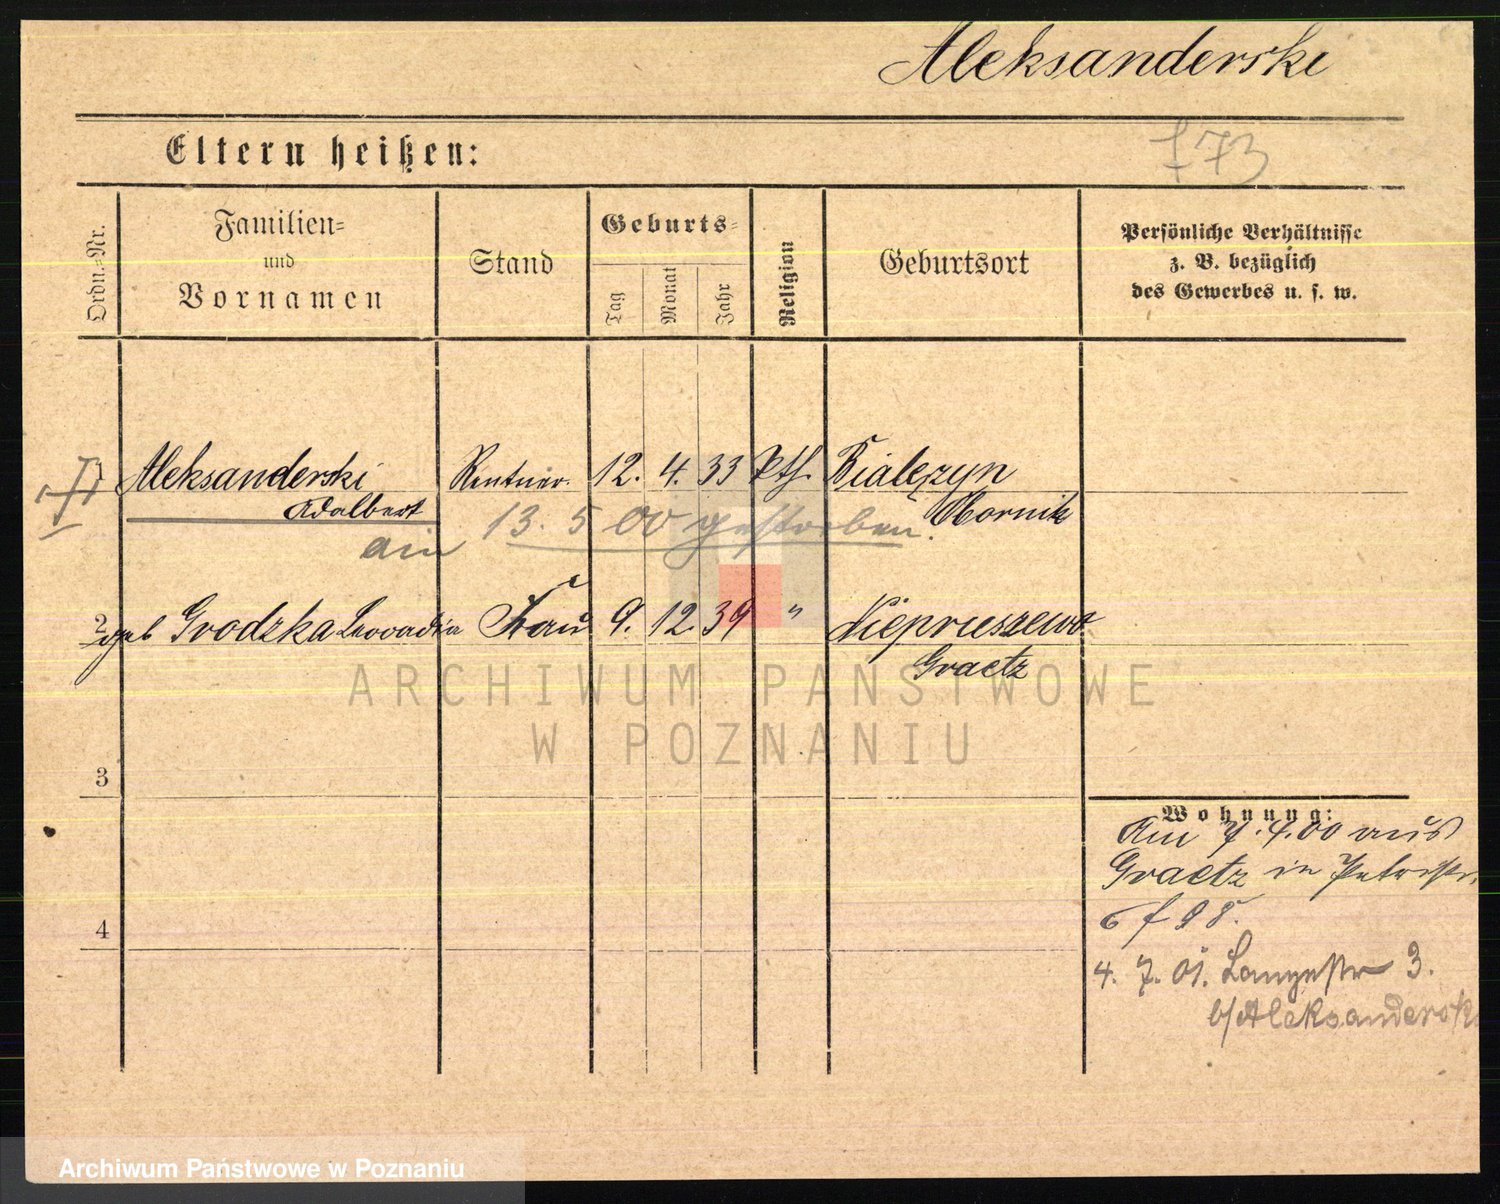 Aleksanderski
Eltern heißen:
f 73
Ordn.-Nr.
Familien-
und
Vornamen
Stand
Geburts-
Tag
Monat
Jahr
Religion
Geburtsort
Persönliche Verhältnisse
z. B. bezüglich
des Gewerbes u. s. w.
1 Aleksanderski Rentner 12. 4. 33 kth. Bialęzyn
Adalbert Obornik
am 13. 5 00 gestorben.
2 geb Grodzka Leocadia Frau 9. 12. 39 " Niepruszewo
Graetz
ARCHIWUM PAŃSTWOWE
W POZNANIU
3
4
Wohnung:
Am 7. 4. 00 aus
Graetz in Petristr.
6
4. 7. 01. Langestr 3.
b/Aleksanderski
Archiwum Państwowe w Poznaniu